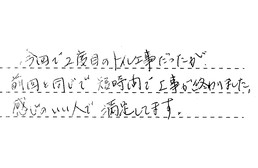 今回で2度目のトイレ工事だったが
前回と同じで短時間で工事が終わりました。
感じのいい人で満足してます。